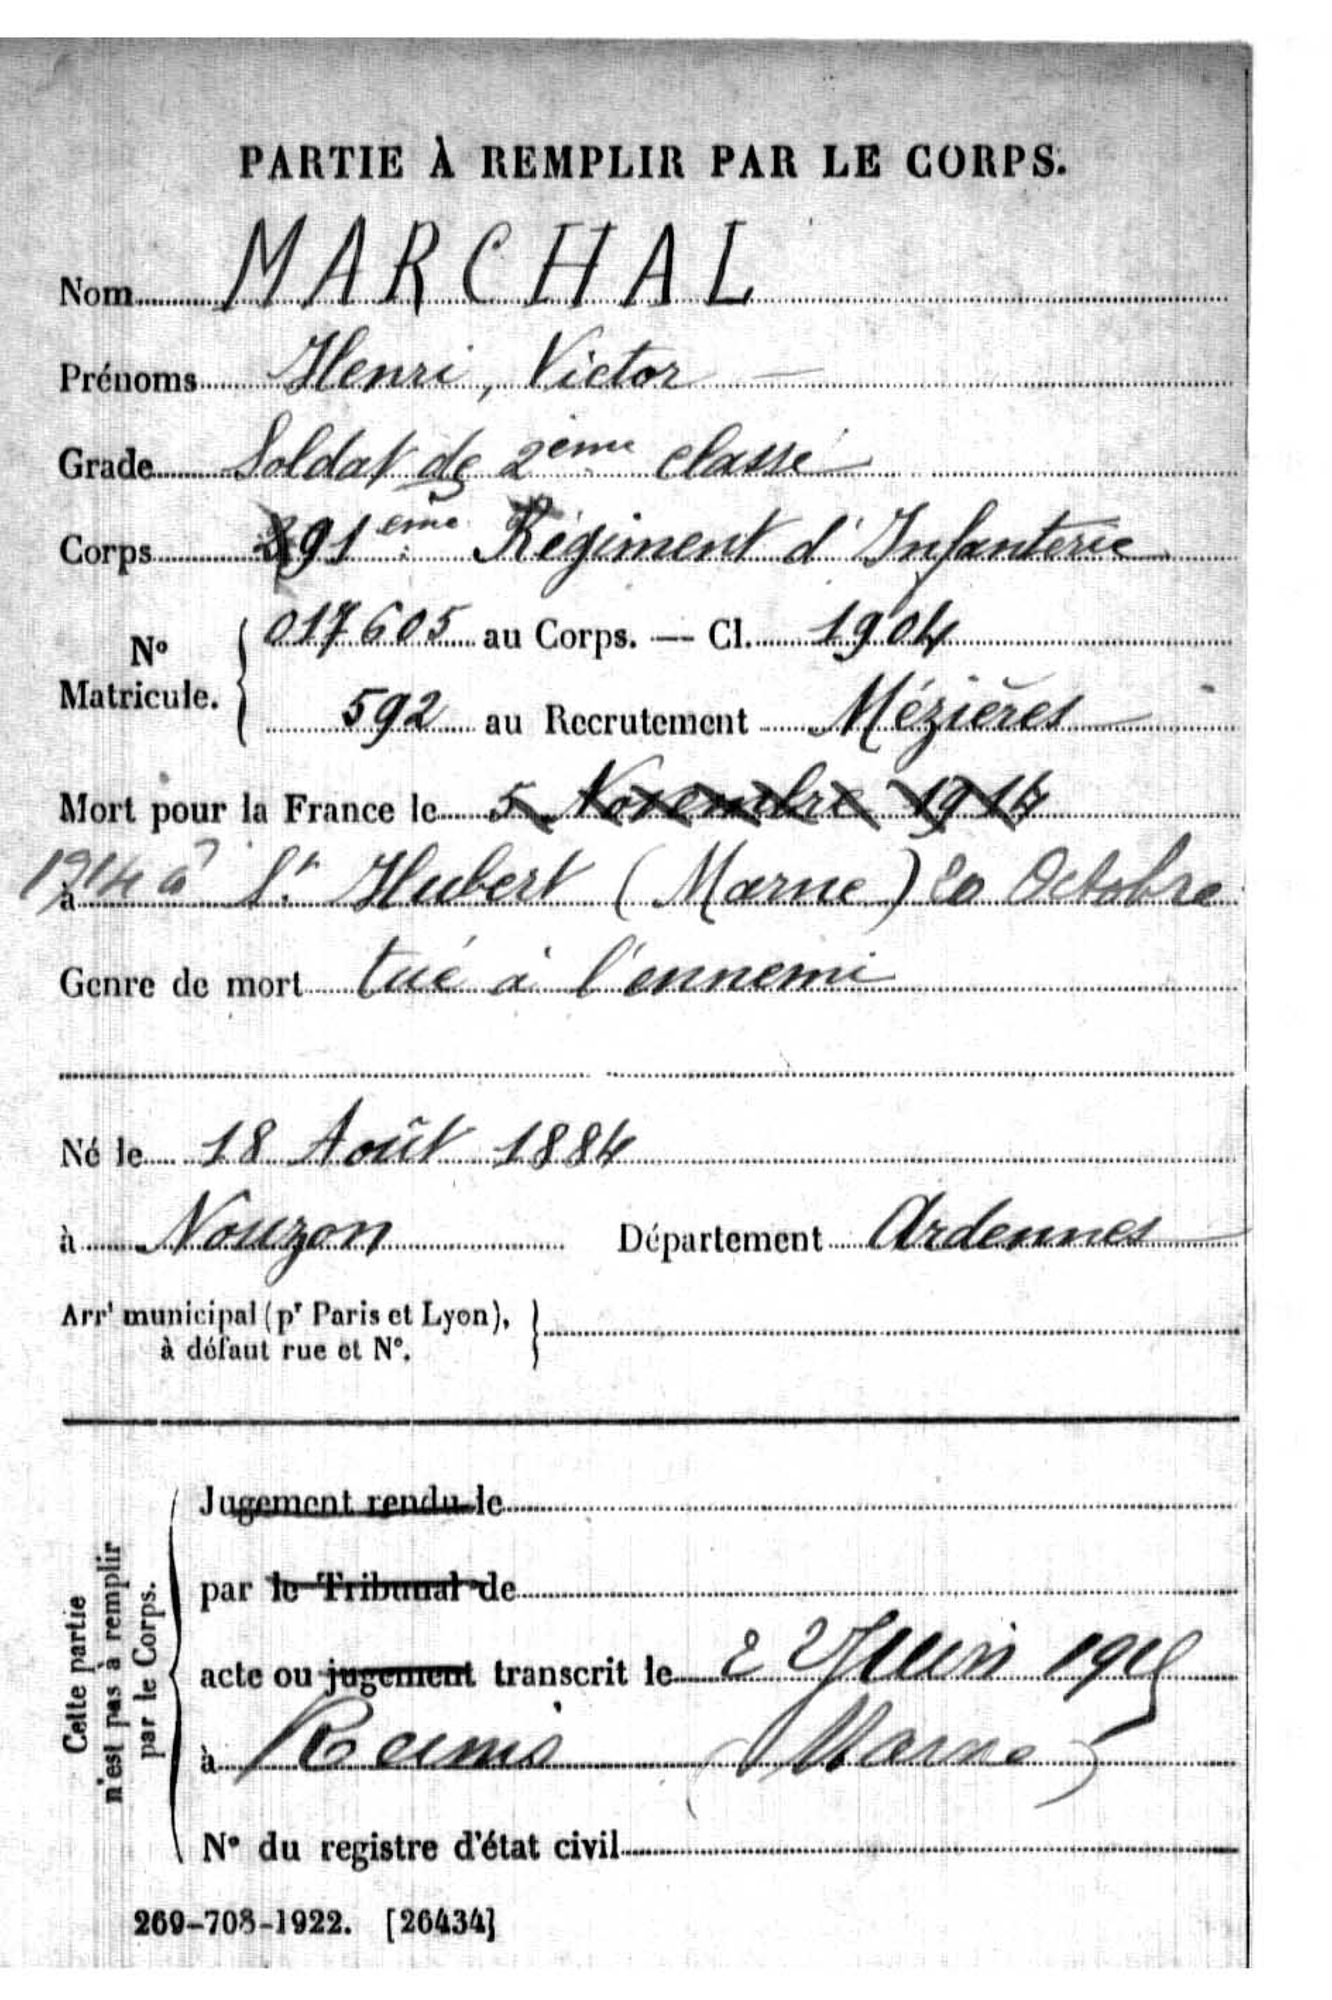 PARTIE À REMPLIR PAR LE CORPS.
Nom MARCHAL
Prénoms Henri, Victor
Grade Soldat de 2ème classe
Corps 291ème Régiment d'Infanterie
N° Matricule. 017605 au Corps. — Cl. 1904
592 au Recrutement Mézières
Mort pour la France le 5 Novembre 1914
1914 à à St Hubert (Marne) 20 Octobre
Genre de mort tué à l'ennemi
Né le 18 Août 1884
à Nouzon Département Ardennes
Arrt municipal (pr Paris et Lyon),
à défaut rue et N°.
Cette partie
n'est pas à remplir
par le Corps.
Jugement rendu le
par le Tribunal de
acte ou jugement transcrit le 2 Juin 1915
à Reims (Marne)
N° du registre d'état civil
269-708-1922. [26434]